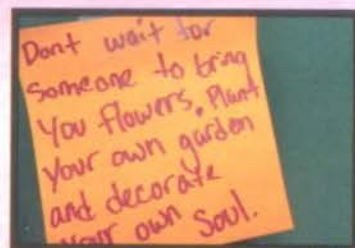 Dont wait for
someone to bring
you flowers. Plant
your own garden
and decorate
your own soul.